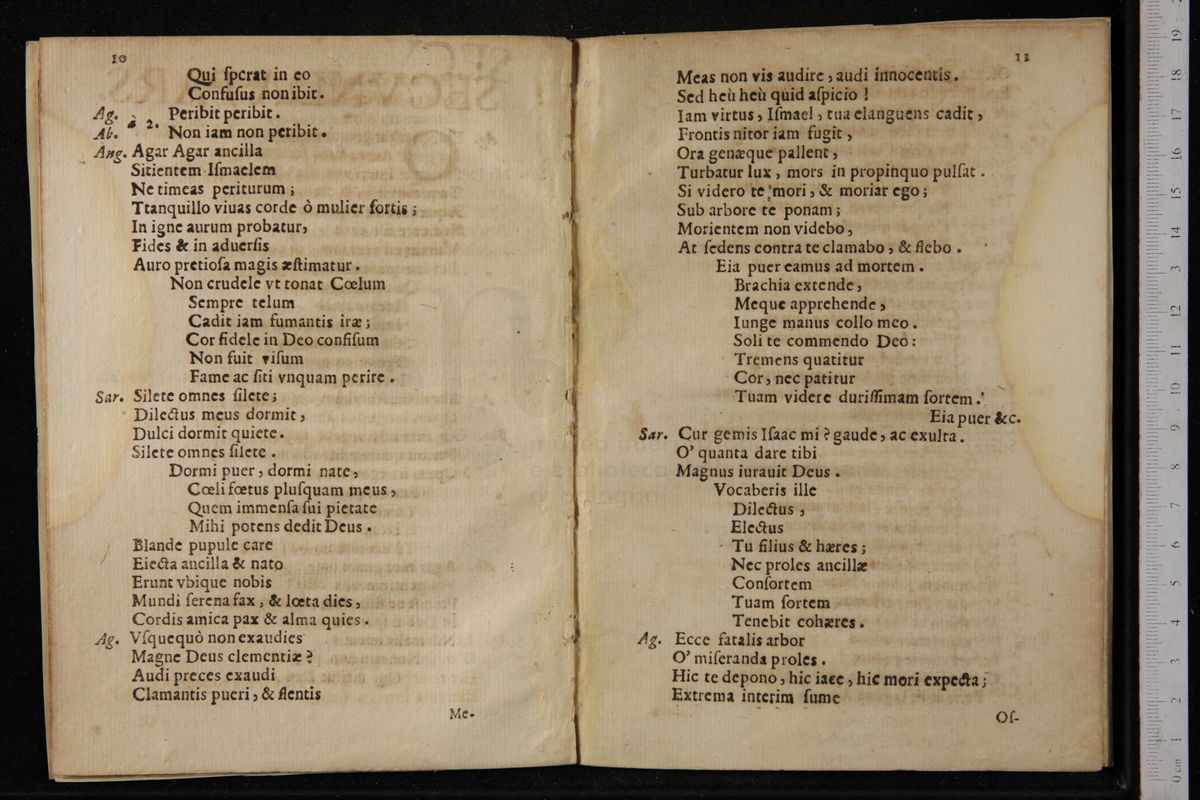 10
Qui ſperat in eo
Confuſus non ibit.
Ag. Peribit peribit.
Ab. à 2. Non iam non peribit.
Ang. Agar Agar ancilla
Sitientem Iſmaelem
Ne timeas periturum ;
Ttanquillo viuas corde ò mulier fortis ;
In igne aurum probatur,
Fides & in aduerſis
Auro pretioſa magis æſtimatur.
Non crudele vt tonat Cœlum
Sempre telum
Cadit iam fumantis iræ ;
Cor fidele in Deo confiſum
Non fuit viſum
Fame ac ſiti vnquam perire.
Sar. Silete omnes ſilete ;
Dilectus meus dormit ,
Dulci dormit quiete.
Silete omnes ſilete .
Dormi puer , dormi nate ,
Cœli fœtus pluſquam meus ,
Quem immenſa ſui pietate
Mihi potens dedit Deus .
Blande pupule care
Eiecta ancilla & nato
Erunt vbique nobis
Mundi ſerena fax , & lœta dies ,
Cordis amica pax & alma quies .
Ag. Vſquequò non exaudies
Magne Deus clementiæ ?
Audi preces exaudi
Clamantis pueri , & flentis
Me-
11
Meas non vis audire , audi innocentis .
Sed heù heù quid aſpicio !
Iam virtus , Iſmael , tua elanguens cadit ,
Frontis nitor iam fugit ,
Ora genæque pallent ,
Turbatur lux , mors in propinquo pulſat .
Si videro te mori , & moriar ego ;
Sub arbore te ponam ;
Morientem non videbo ,
At ſedens contra te clamabo , & flebo .
Eia puer eamus ad mortem .
Brachia extende ,
Meque apprehende ,
Iunge manus collo meo .
Soli te commendo Deo :
Tremens quatitur
Cor , nec patitur
Tuam videre duriſſimam ſortem .
Eia puer &c.
Sar. Cur gemis Iſaac mi ? gaude , ac exulta .
O' quanta dare tibi
Magnus iurauit Deus .
Vocaberis ille
Dilectus ,
Electus
Tu filius & hæres ;
Nec proles ancillæ
Conſortem
Tuam ſortem
Tenebit cohæres .
Ag. Ecce fatalis arbor
O' miſeranda proles .
Hic te depono , hic iace , hic mori expecta ;
Extrema interim ſume
Oſ-